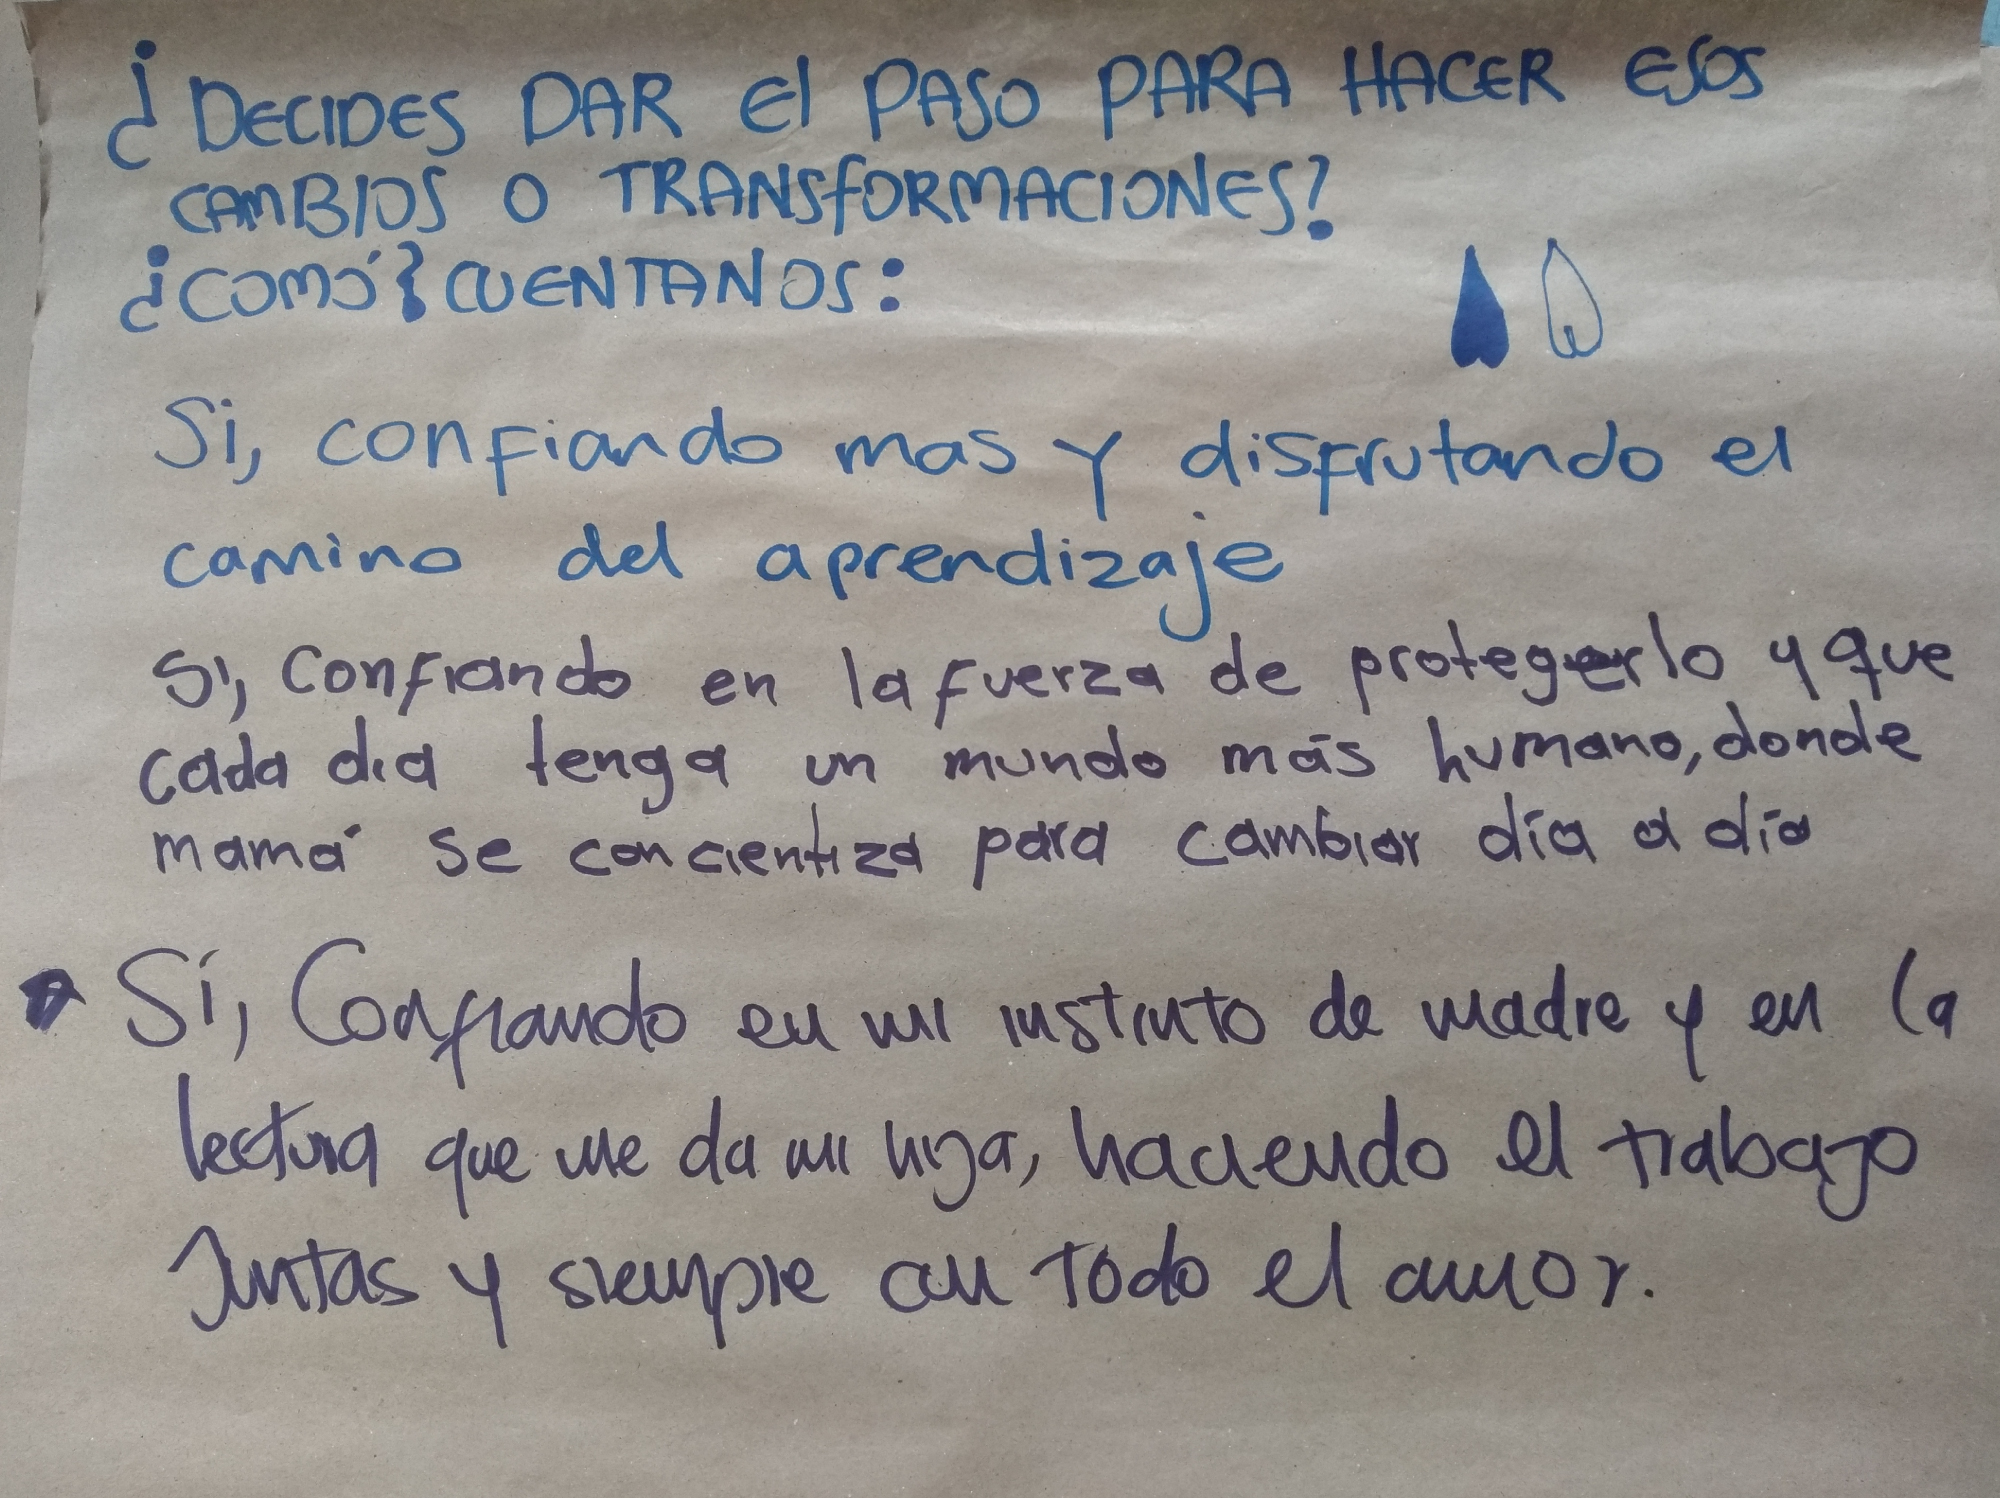 ¿DECIDES DAR El PASO PARA HACER ESOS
CAMBIOS O TRANSfORMACIONES?
¿COMÓ? CUENTANOS:
Si, confiando mas y disfrutando el
camino del aprendizaje
Si, Confiando en la fuerza de protegerlo y que
cada dia tenga un mundo más humano, donde
mamá se concientiza para cambiar día a día
Sí, Confiando en mi instinto de madre y en la
lectura que me da mi hija, haciendo el trabajo
Juntas y siempre con todo el amor.